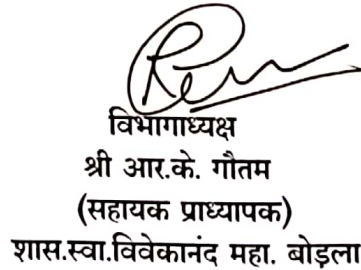 विभागाध्यक्ष
श्री आर.के. गौतम
(सहायक प्राध्यापक)
शास.स्वा.विवेकानंद महा. बोड़ला